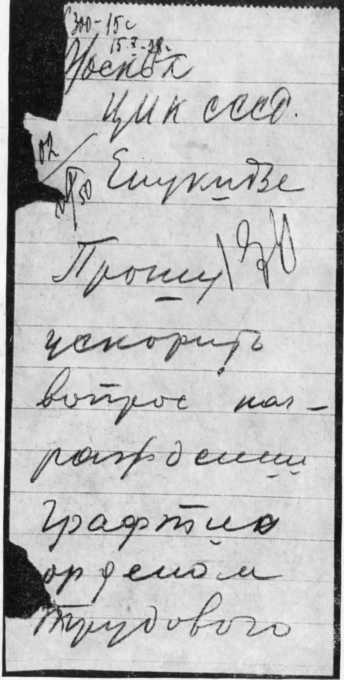 300-15с
Москва
ЦИК СССР.
Енукидзе
Прошу
ускорить
вопрос наг-
раждении
Графтио
орденом
Трудового